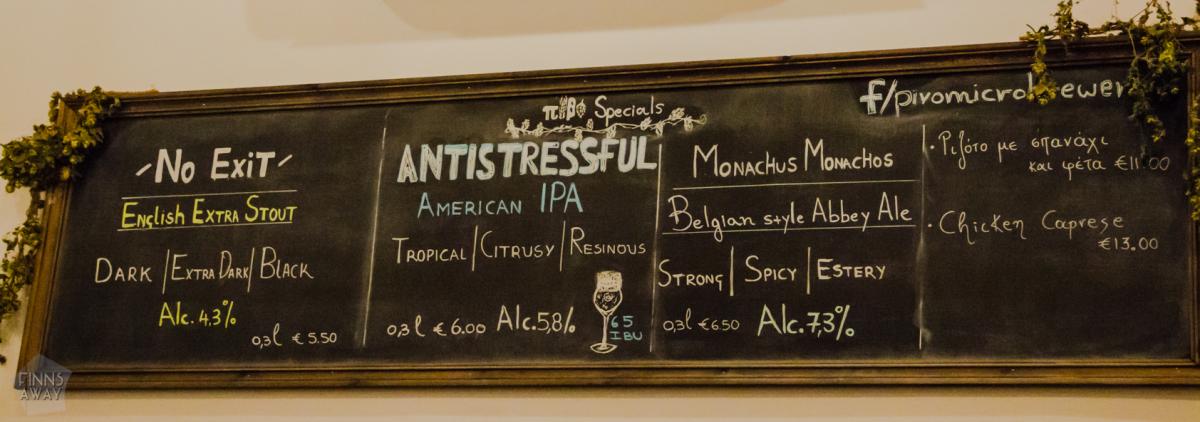 πiβo Specials
f/pivomicrobrewery
-No Exit-
English Extra Stout
Dark | Extra Dark | Black
Alc. 4,3%
0,3l €5.50
ANTISTRESSFUL
American IPA
Tropical | Citrusy | Resinous
0,3l €6.00 Alc. 5,8%
65
IBU
Monachus Monachos
Belgian style Abbey Ale
Strong | Spicy | Estery
0,3l €6.50 Alc. 7,3%
· Ριζότο με σπανάχι
και φέτα €11.00
· Chicken Caprese
€13.00
FINNS
AWAY